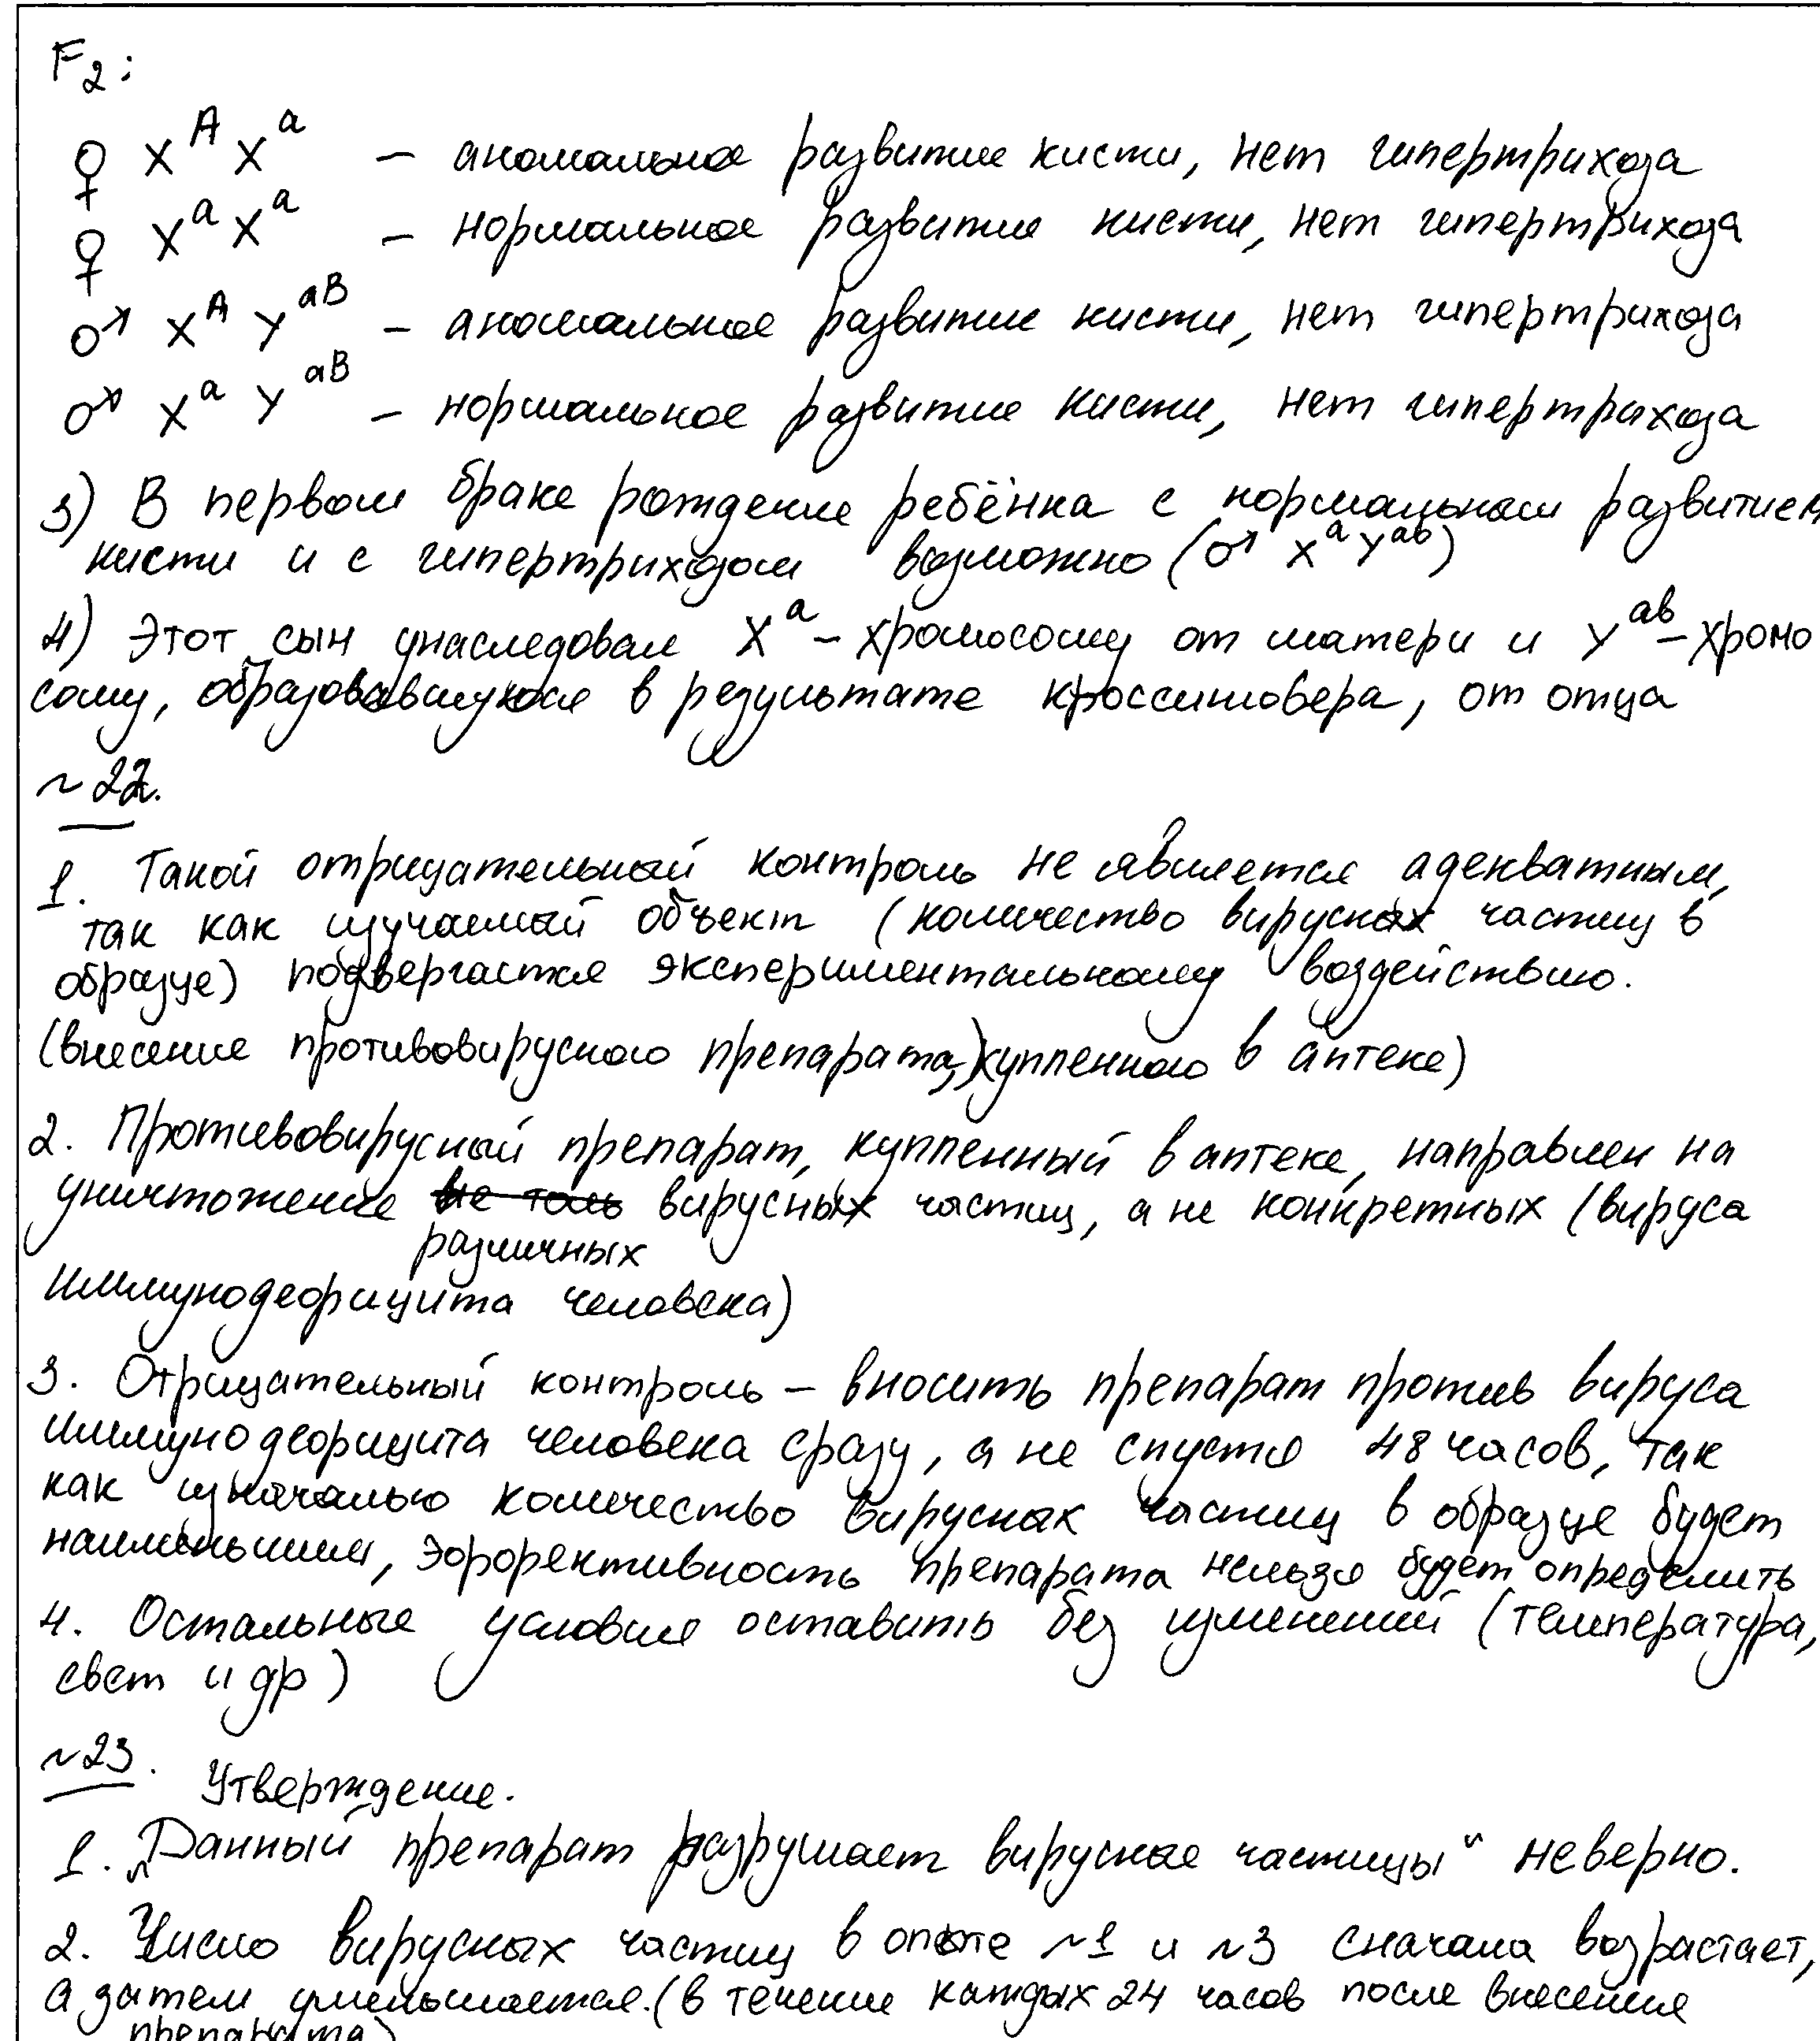 F₂:
♀ X^A X^a – аномальное развитие кисти, нет гипертрихоза
♀ X^a X^a – нормальное развитие кисти, нет гипертрихоза
♂ X^A Y^aB – аномальное развитие кисти, нет гипертрихоза
♂ X^a Y^aB – нормальное развитие кисти, нет гипертрихоза
3) В первом браке рождение ребёнка с нормальным развитием
кисти и с гипертрихозом возможно (♂ X^a Y^ab)
4) Этот сын унаследовал X^a – хромосому от матери и Y^ab – хромо
сому, образовавшуюся в результате кроссинговера, от отца
~22.
1. Такой отрицательный контроль не является адекватным,
так как изучаемый объект (количество вирусных частиц в
образце) подвергается экспериментальному воздействию.
(внесение противовирусного препарата, купленного в аптеке)
2. Противовирусный препарат, купленный в аптеке, направлен на
уничтожение вирусных частиц, а не конкретных (вируса
различных
иммунодефицита человека)
3. Отрицательный контроль – вносить препарат против вируса
иммунодефицита человека сразу, а не спустя 48 часов, так
как изначально количество вирусных частиц в образце будет
наименьшим, эффективность препарата нельзя будет определить
4. Остальные условия оставить без изменений (температура,
свет и др)
~23.
Утверждение.
1. „Данный препарат разрушает вирусные частицы“ неверно.
2. Число вирусных частиц в опыте ~1 и ~3 сначала возрастает,
а затем уменьшается. (в течение каждых 24 часов после внесения
препарата)